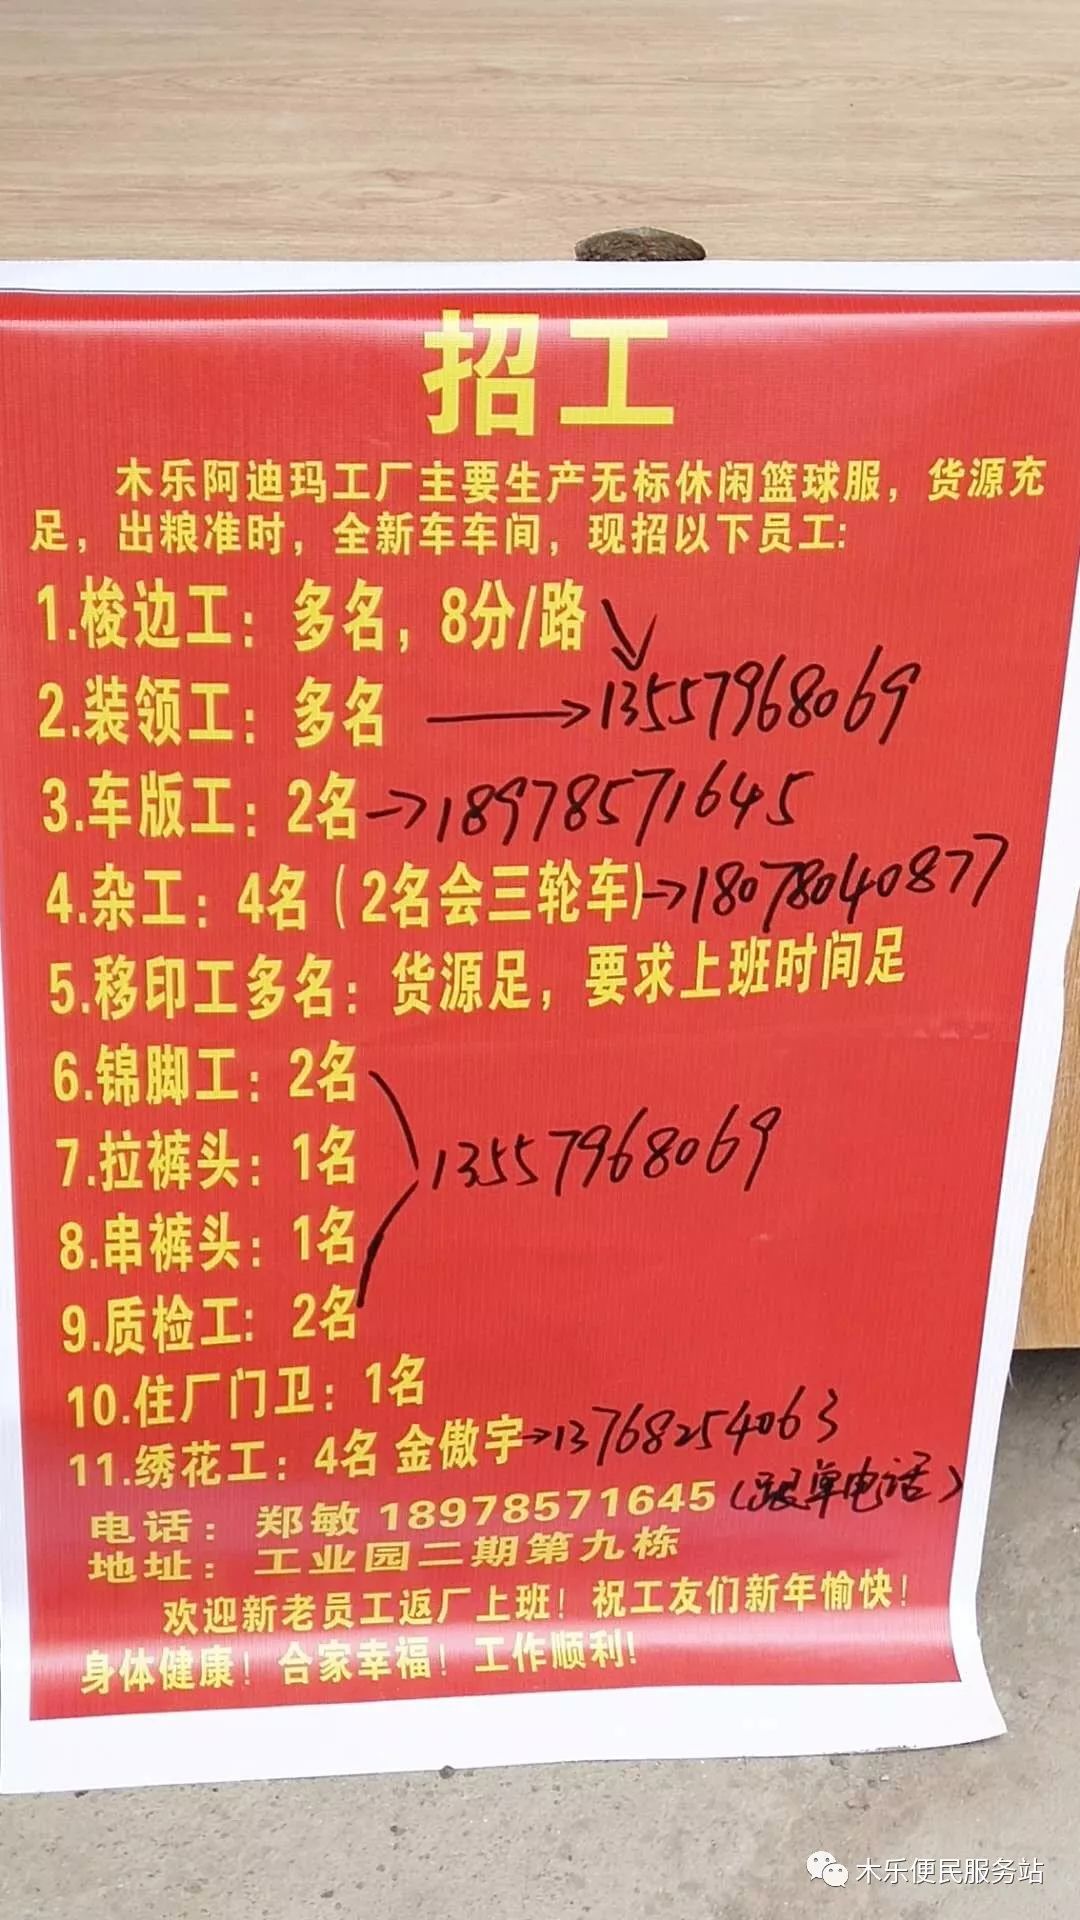 招工
木乐阿迪玛工厂主要生产无标休闲篮球服，货源充
足，出粮准时，全新车车间，现招以下员工:
1.梭边工：多名，8分/路
2.装领工：多名 13557968069
3.车版工：2名 18978571645
4.杂工：4名（2名会三轮车） 18078040877
5.移印工多名：货源足，要求上班时间足
6.锦脚工：2名
7.拉裤头：1名 13557968069
8.串裤头：1名
9.质检工：2名
10.住厂门卫：1名
11.绣花工：4名 金傲宇 13768254063
电话：郑敏 18978571645（跟单电话）
地址：工业园二期第九栋
欢迎新老员工返厂上班！祝工友们新年愉快！
身体健康！合家幸福！工作顺利!
木乐便民服务站